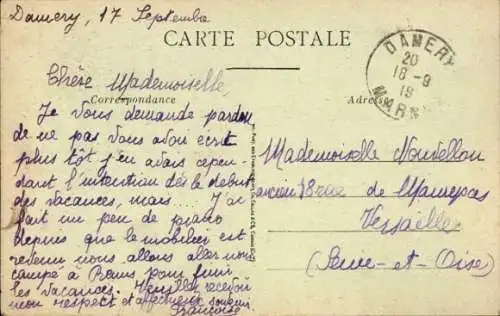 Damery, 17 Septembre
CARTE POSTALE
DAMERY
20
18-9
19
MARNE
Chère Mademoiselle
Correspondance
Adresse
Je vous demande pardon
de ne pas vous avoir écrit
plus tôt j'en avais cepen-
dant l'intention dès le début
des vacances, mais.... J'ai
fait un peu de piano
depuis que le mobilier est
revenu nous allons aller nous
campé à Reims pour finir
les vacances. Veuillez recevoir
mon respect et affectueux souvenir
Françoise
Mademoiselle Nouvellon
ancien 18 rue de Maurepas
Versailles
(Seine-et-Oise)